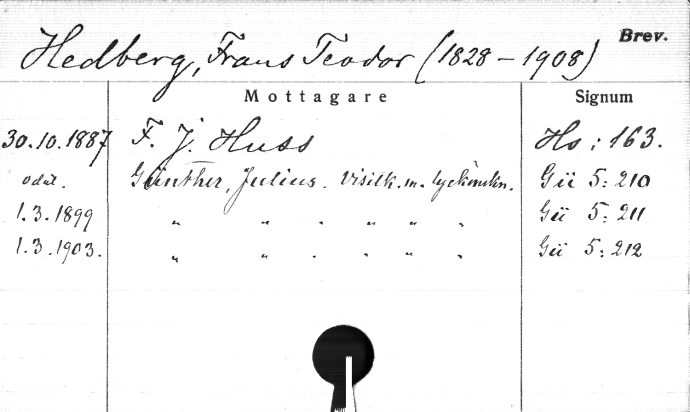 Brev.
Hedberg, Frans Teodor (1828 – 1908)
Mottagare Signum
30.10.1887 F. J. Huss Hs : 163.
odat. Günther, Julius. Visitk. m. lyckönskn. Gü 5: 210
1.3.1899 " " . " " . Gü 5: 211
1.3.1903. " " . " " . Gü 5: 212